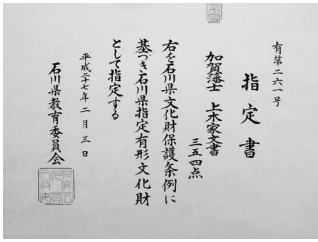 有第二六一号
指定書
加賀藩士 上木家文書
三五四点
右を石川県文化財保護条例に
基づき石川県指定有形文化財
として指定する
平成二十七年二月三日
石川県教育委員会